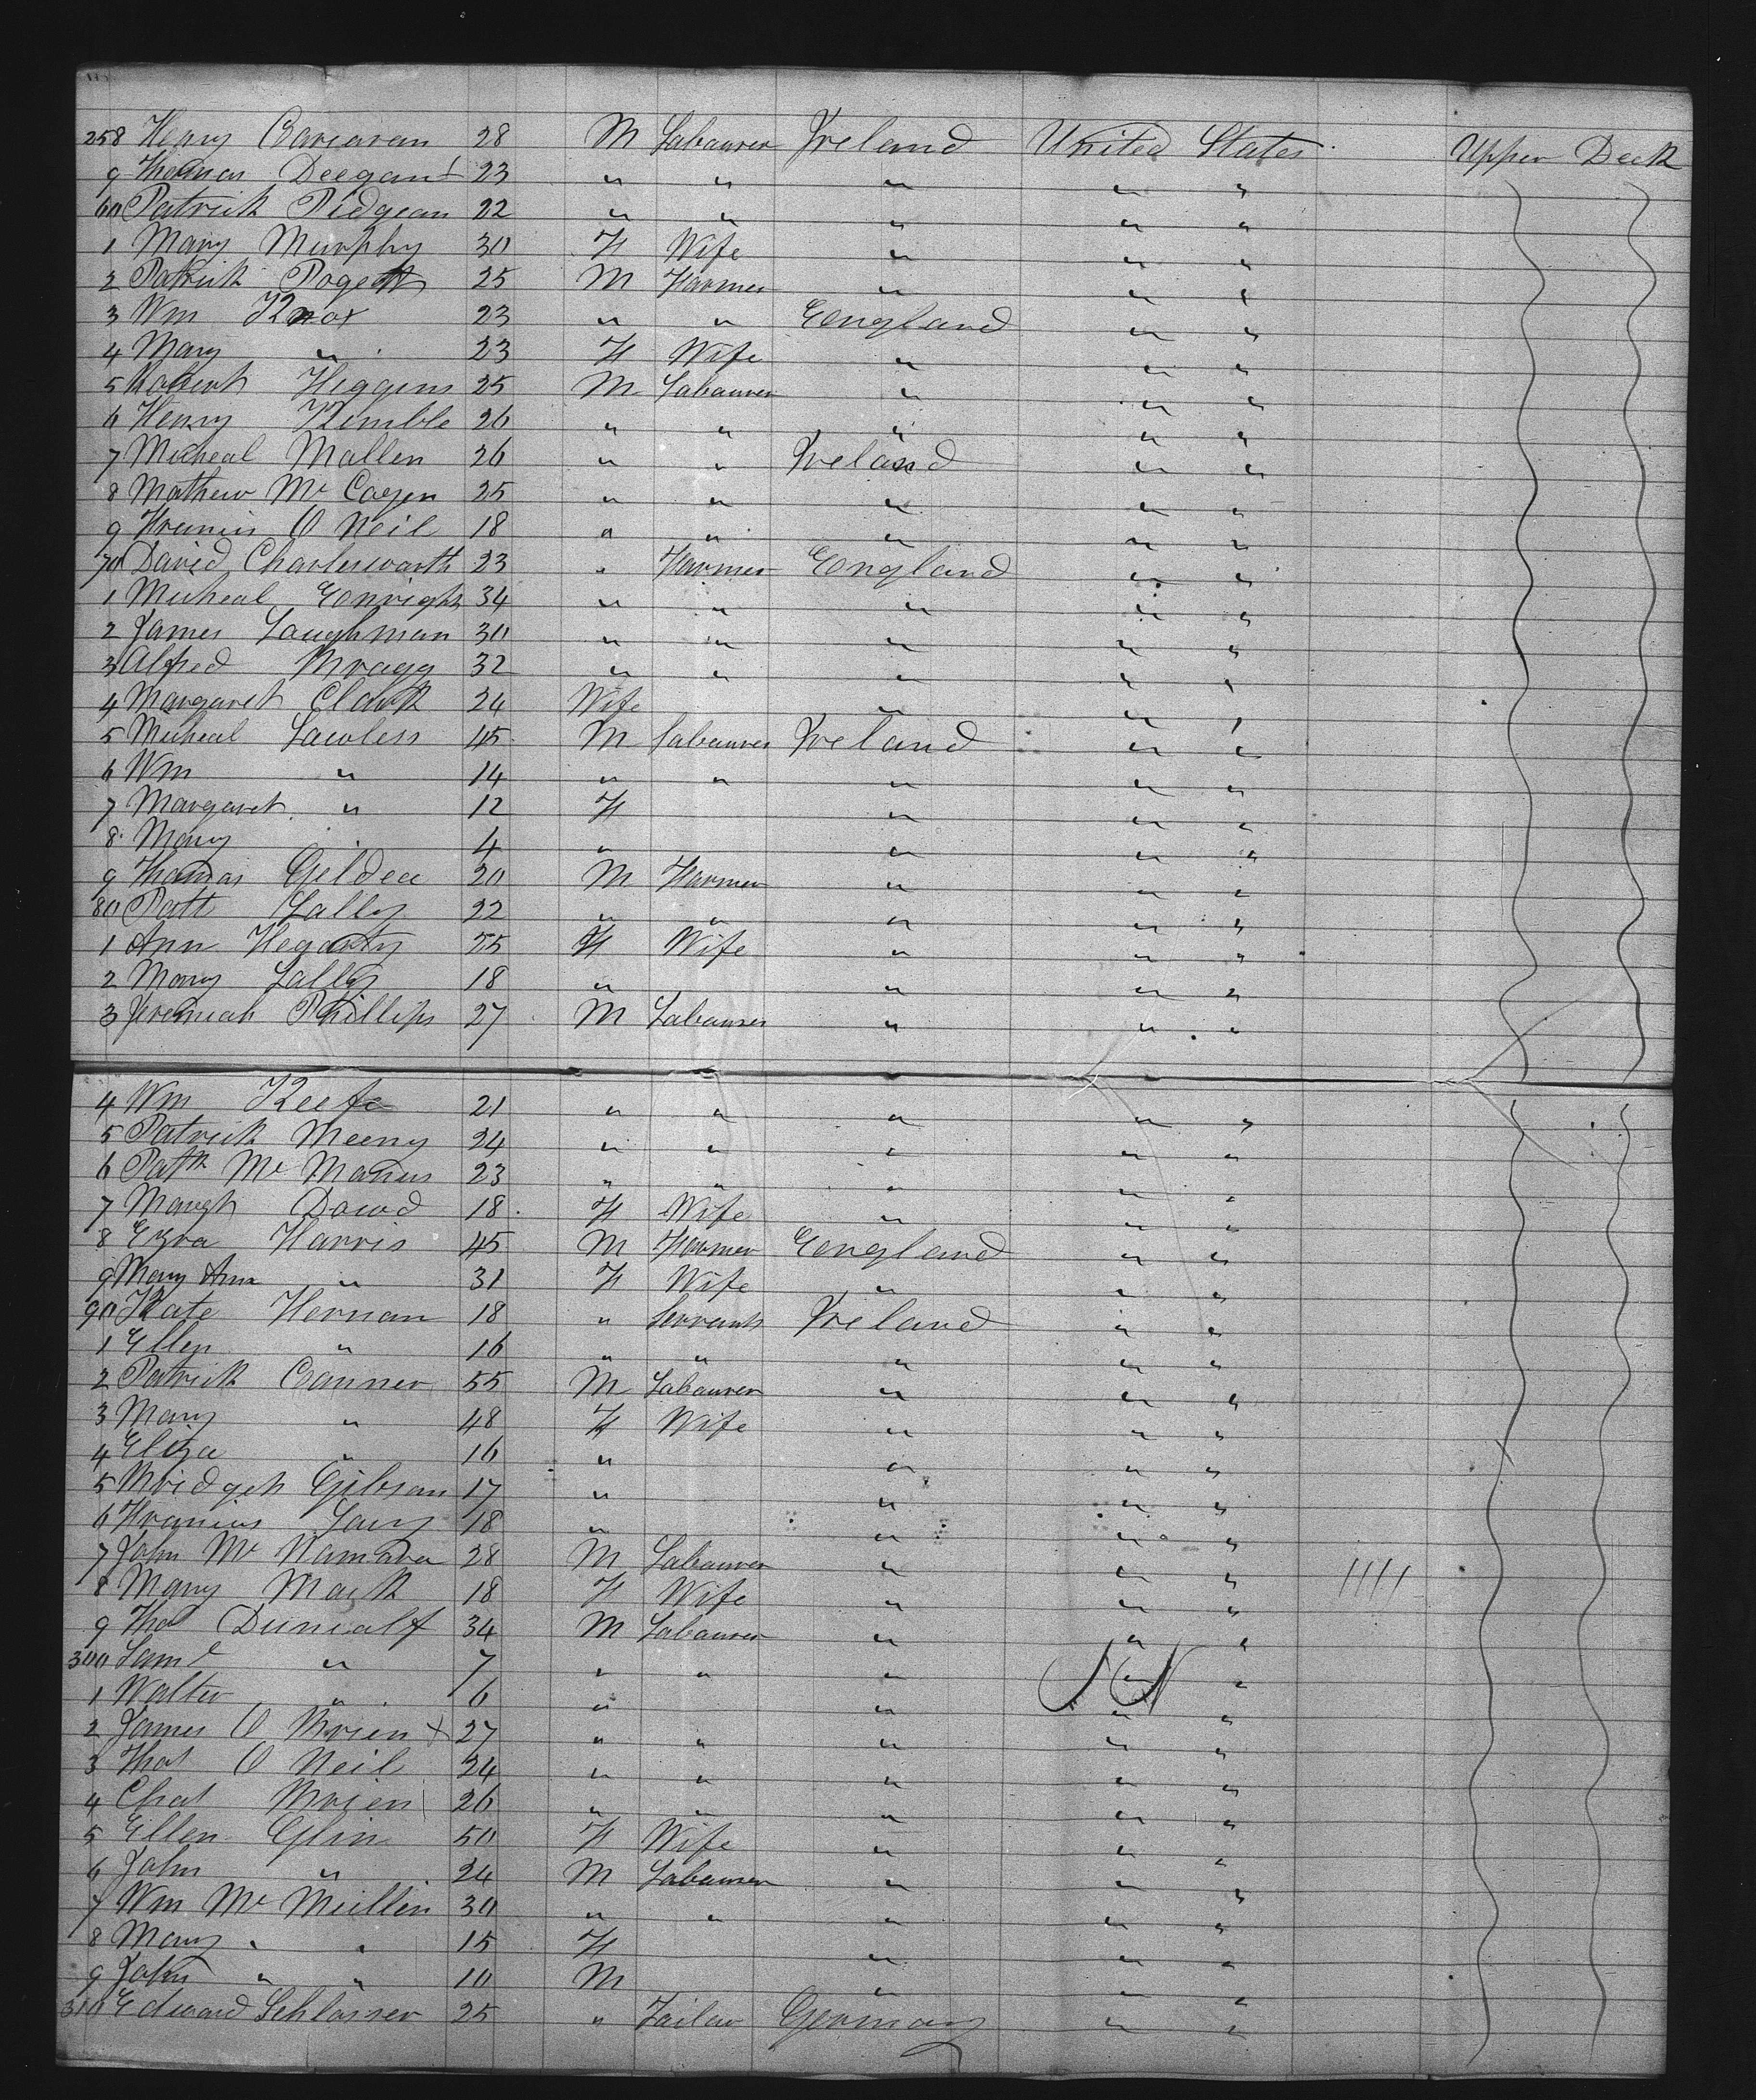 258 Henry Corcoran 28 M Labourer Ireland United States Upper Deck
9 Thomas Deegan 23 " " " " "
60 Patrick Pidgeon 22 " " " " "
1 Mary Murphy 30 F Wife " " "
2 Patrick Pogett 25 M Farmer " " "
3 Wm Knox 23 " " England " "
4 Mary " 23 F Wife " " "
5 Robert Higgins 25 M Labourer " " "
6 Henry Kemble 26 " " " " "
7 Micheal Mallen 26 " " Ireland " "
8 Mathew Mc 25 " " " " "
9 Francis O Neil 18 " " " " "
70 David Charlesworth 23 " Farmer England " "
1 Micheal Enright 34 " " " " "
2 James Laughman 30 " " " " "
3 Alfred Bragg 32 " " " " "
4 Margaret Clark 24 Wife " " "
5 Micheal Lawless 45 M Labourer Ireland " "
6 Wm " 14 " " " " "
7 Margaret " 12 F " " "
8 Mary " 4 " " " "
9 Thomas Gildea 20 M Farmer " " "
80 Patt Lally 22 " " " " "
1 Ann Hegarty 55 F Wife " " "
2 Mary Lally 18 " " " "
3 Jeremiah Phillips 27 M Labourer " " "
4 Wm Keefe 21 " " " " "
5 Patrick Meeny 24 " " " " "
6 Patk Mc Manus 23 " " " " "
7 Dowd 18 F Wife " " "
8 Ezra Harris 45 M Farmer England " "
9 Mary Ann " 31 F Wife " " "
90 Kate Hernan 18 " Servant Ireland " "
1 Ellen " 16 " " " " "
2 Patrick Conner 55 M Labourer " " "
3 Mary " 48 F Wife " " "
4 Eliza " 16 " " " "
5 Bridget Gibson 17 " " " "
6 Francis 18 " " " "
7 John Mc Namara 28 M Labourer " " " ////
8 Mary Mack 18 F Wife " " "
9 Thos Duncalf 34 M Labourer " " "
300 Saml " 7 " " " " "
1 Walter " 6 " " " "
2 James O Brien x 27 " " " " "
3 Thos O Neil 24 " " " " "
4 Chas Brien 26 " " " " "
5 Ellen Glin 50 F Wife " " "
6 John " 24 M Labourer " " "
7 Wm Mc Mullin 30 " " " " "
8 Mary " " 15 F " " "
9 John " " 10 M " " "
310 Edward Schlosser 25 " Tailor Germany " "